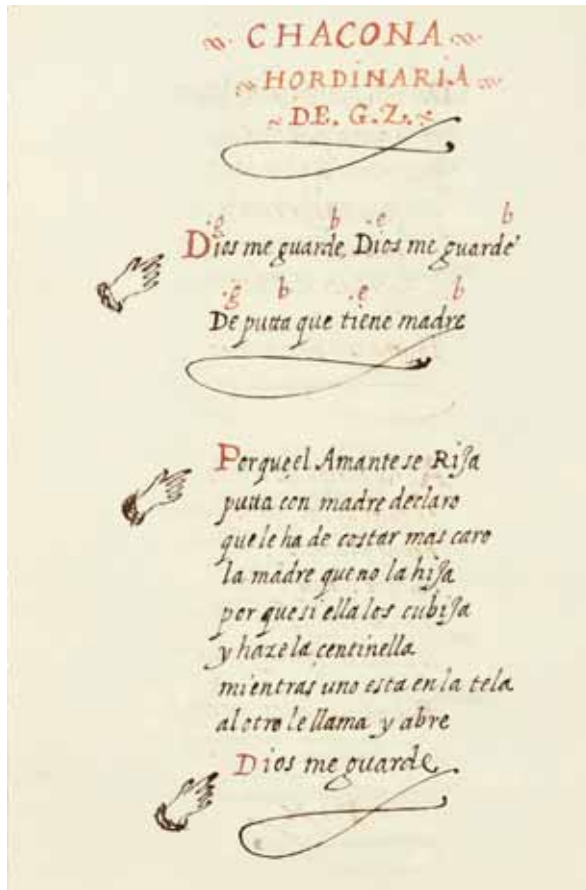 CHACONA
HORDINARIA
DE. G. Z.
·g b ·e b
Dios me guarde, Dios me guarde
·g b ·e b
De putta que tiene madre
Porque el Amante se Rija
putta con madre declaro
que le ha de costar mas caro
la madre que no la hija
por que si ella los cubija
y haze la centinella
mientras uno esta en la tela
al otro le llama y abre
Dios me guarde